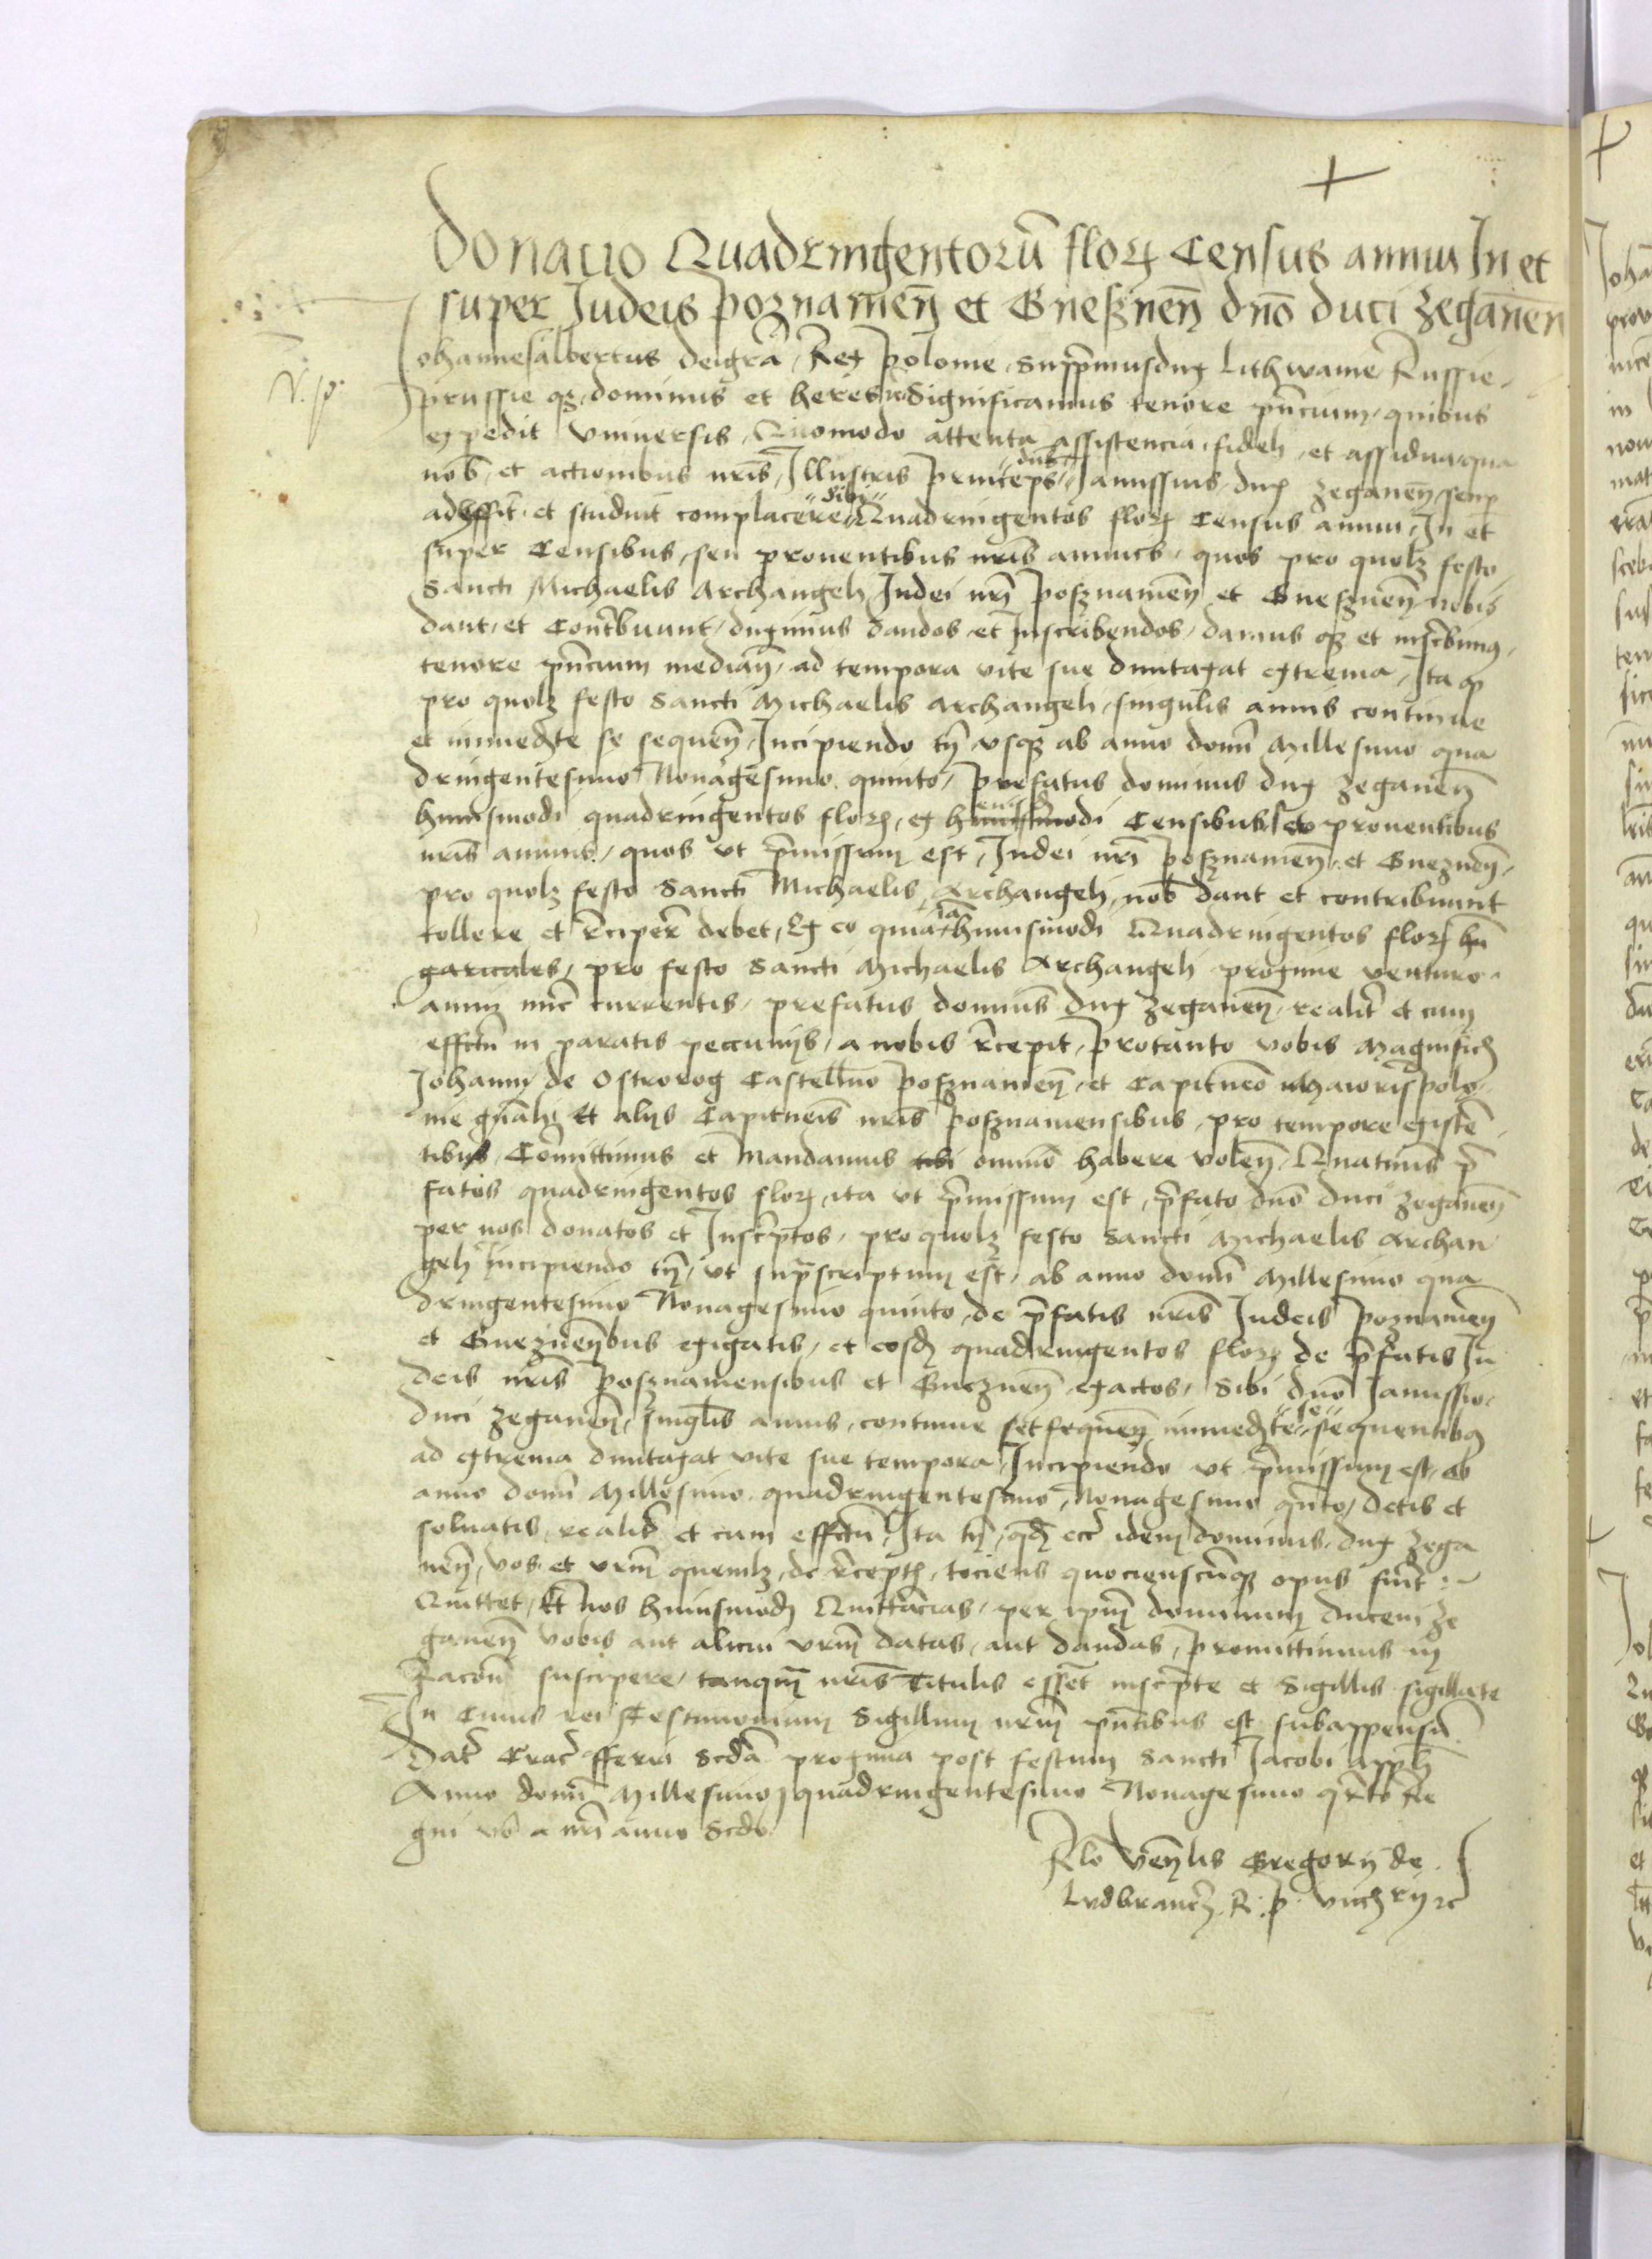 Donacio Quadringentorū florꝝ Census annui In et
super Judeis poznanieñ et Gneßneñ dn̄o duci zeganeñ
Johannesalbertus deigrā Rex polonie supp̄musdux lithwanie Russie
prussie qꝫ dominus et heres ꝛc Significamus tenore pn̄cium quibus
expedit vniuersis Quomodo attenta assistencia fideli et assidua qua
nob̄ et actionibus nr̄is Illustris princeps dn̄s Janussius dux zeganeñ semp
adessit et studuit complacere sibi Quadringentos florꝝ Census annui In et
super Censibus seu prouentibus nr̄is annuis quos pro quolꝫ festo
Sancti Michaelis Archangeli Judei nr̄i posznanieñ et Gneszneñ nobis
dant et Contr̄buunt duximus dandos et Inscribendos damus qꝫ et inscr̄bimus
tenore pn̄cium mediañ ad tempora vite sue dumtaxat extrema Ita ꝙ
pro quolꝫ festo Sancti Michaelis Archangeli singulis annis continue
et immedte se sequeñ Incipiendo tn̄ vsqꝫ ab anno domī Millesimo qua
dringentesimo Nonagesimo quinto prefatus dominus dux zeganeñ
huiusmodi quadringentos florꝝ ex huiusmodi eisdē Censibus seu prouentibus
nr̄is annuis quos vt p̄missum est Judei nr̄i posznanieñ et Gnezneñ
pro quolꝫ festo Sancti Michaelis Archangeli nob̄ dant et contribuunt
tollere et r̄cipere debet Ex eo quia iā huiusmodi Quadringentos florꝝ hū
garicales pro festo Sancti Michaelis Archangeli proxime venturo
anni nūc currentis prefatus dominus dux zeganeñ realit̄ et cum
effctū in paratis peccunijs a nobis r̄cepit protanto vobis Magnificꝫ
Johanni de Ostrorog Castellano posznanieñ et Capitneo Maiorispolo
nie gn̄ali Et alijs Capitneis nr̄is posznaniensibus pro tempore existē
tibus Comittimus et Mandamus sibi omnino habere voleñ Quatinus p̄
fatos quadringentos florꝝ ita vt p̄missum est p̄fato dn̄o duci zeganeñ
per nos donatos et Inscr̄ptos pro quolꝫ festo Sancti Michaelis Archan
geli incipiendo tn̄ vt supr̄scriptum est ab anno domī Millesimo qua
dringentesimo Nonagesimo quinto de p̄fatis nr̄is Judeis poznanieñ
et Gnezneñbus exigatis et eosdꝫ quadringentos florꝝ de p̄fatis Ju
deis nr̄is posznaniensibus et Gnezneñ exactos Sibi dn̄o Janussio
duci zeganeñ singlis annis continue immedte se sequentibꝫ
ad extrema dumtaxat vite sue tempora Incipiendo vt p̄missum est ab
anno domī Millesimo quadringentesimo Nonagesimo qn̄to detis et
soluatis realit̄ et cum effctū Ita tn̄ qdꝫ idem dominus dux zega
neñ vos et vrm̄ quemlꝫ de r̄ceptꝫ tociens quocienscūqꝫ opus fuīt
Quittet Et nos huiusmodꝫ Quittācias per ipm̄ dominum ducem ze
ganeñ vobis aut alicui vrm̄ datas aut dandas promittimus in
Racōm suscipere tanqm̄ nr̄is Titulis essēt inscr̄pte et Sigillis sigillate
In Cuius rei Testimonium Sigillum nrm̄ pn̄tibus est subappensū
Dat̄ Crac̄ fferia Scdā proxima post festum Sancti Jacobi appłi
Anno domī Millesimo quadringentesimo Nonagesimo qr̄to Re
gni vō nr̄i anno Scdo
Rlo Veñlis Gregorij de
Ludbrancz R P vicꝫrij ꝛc